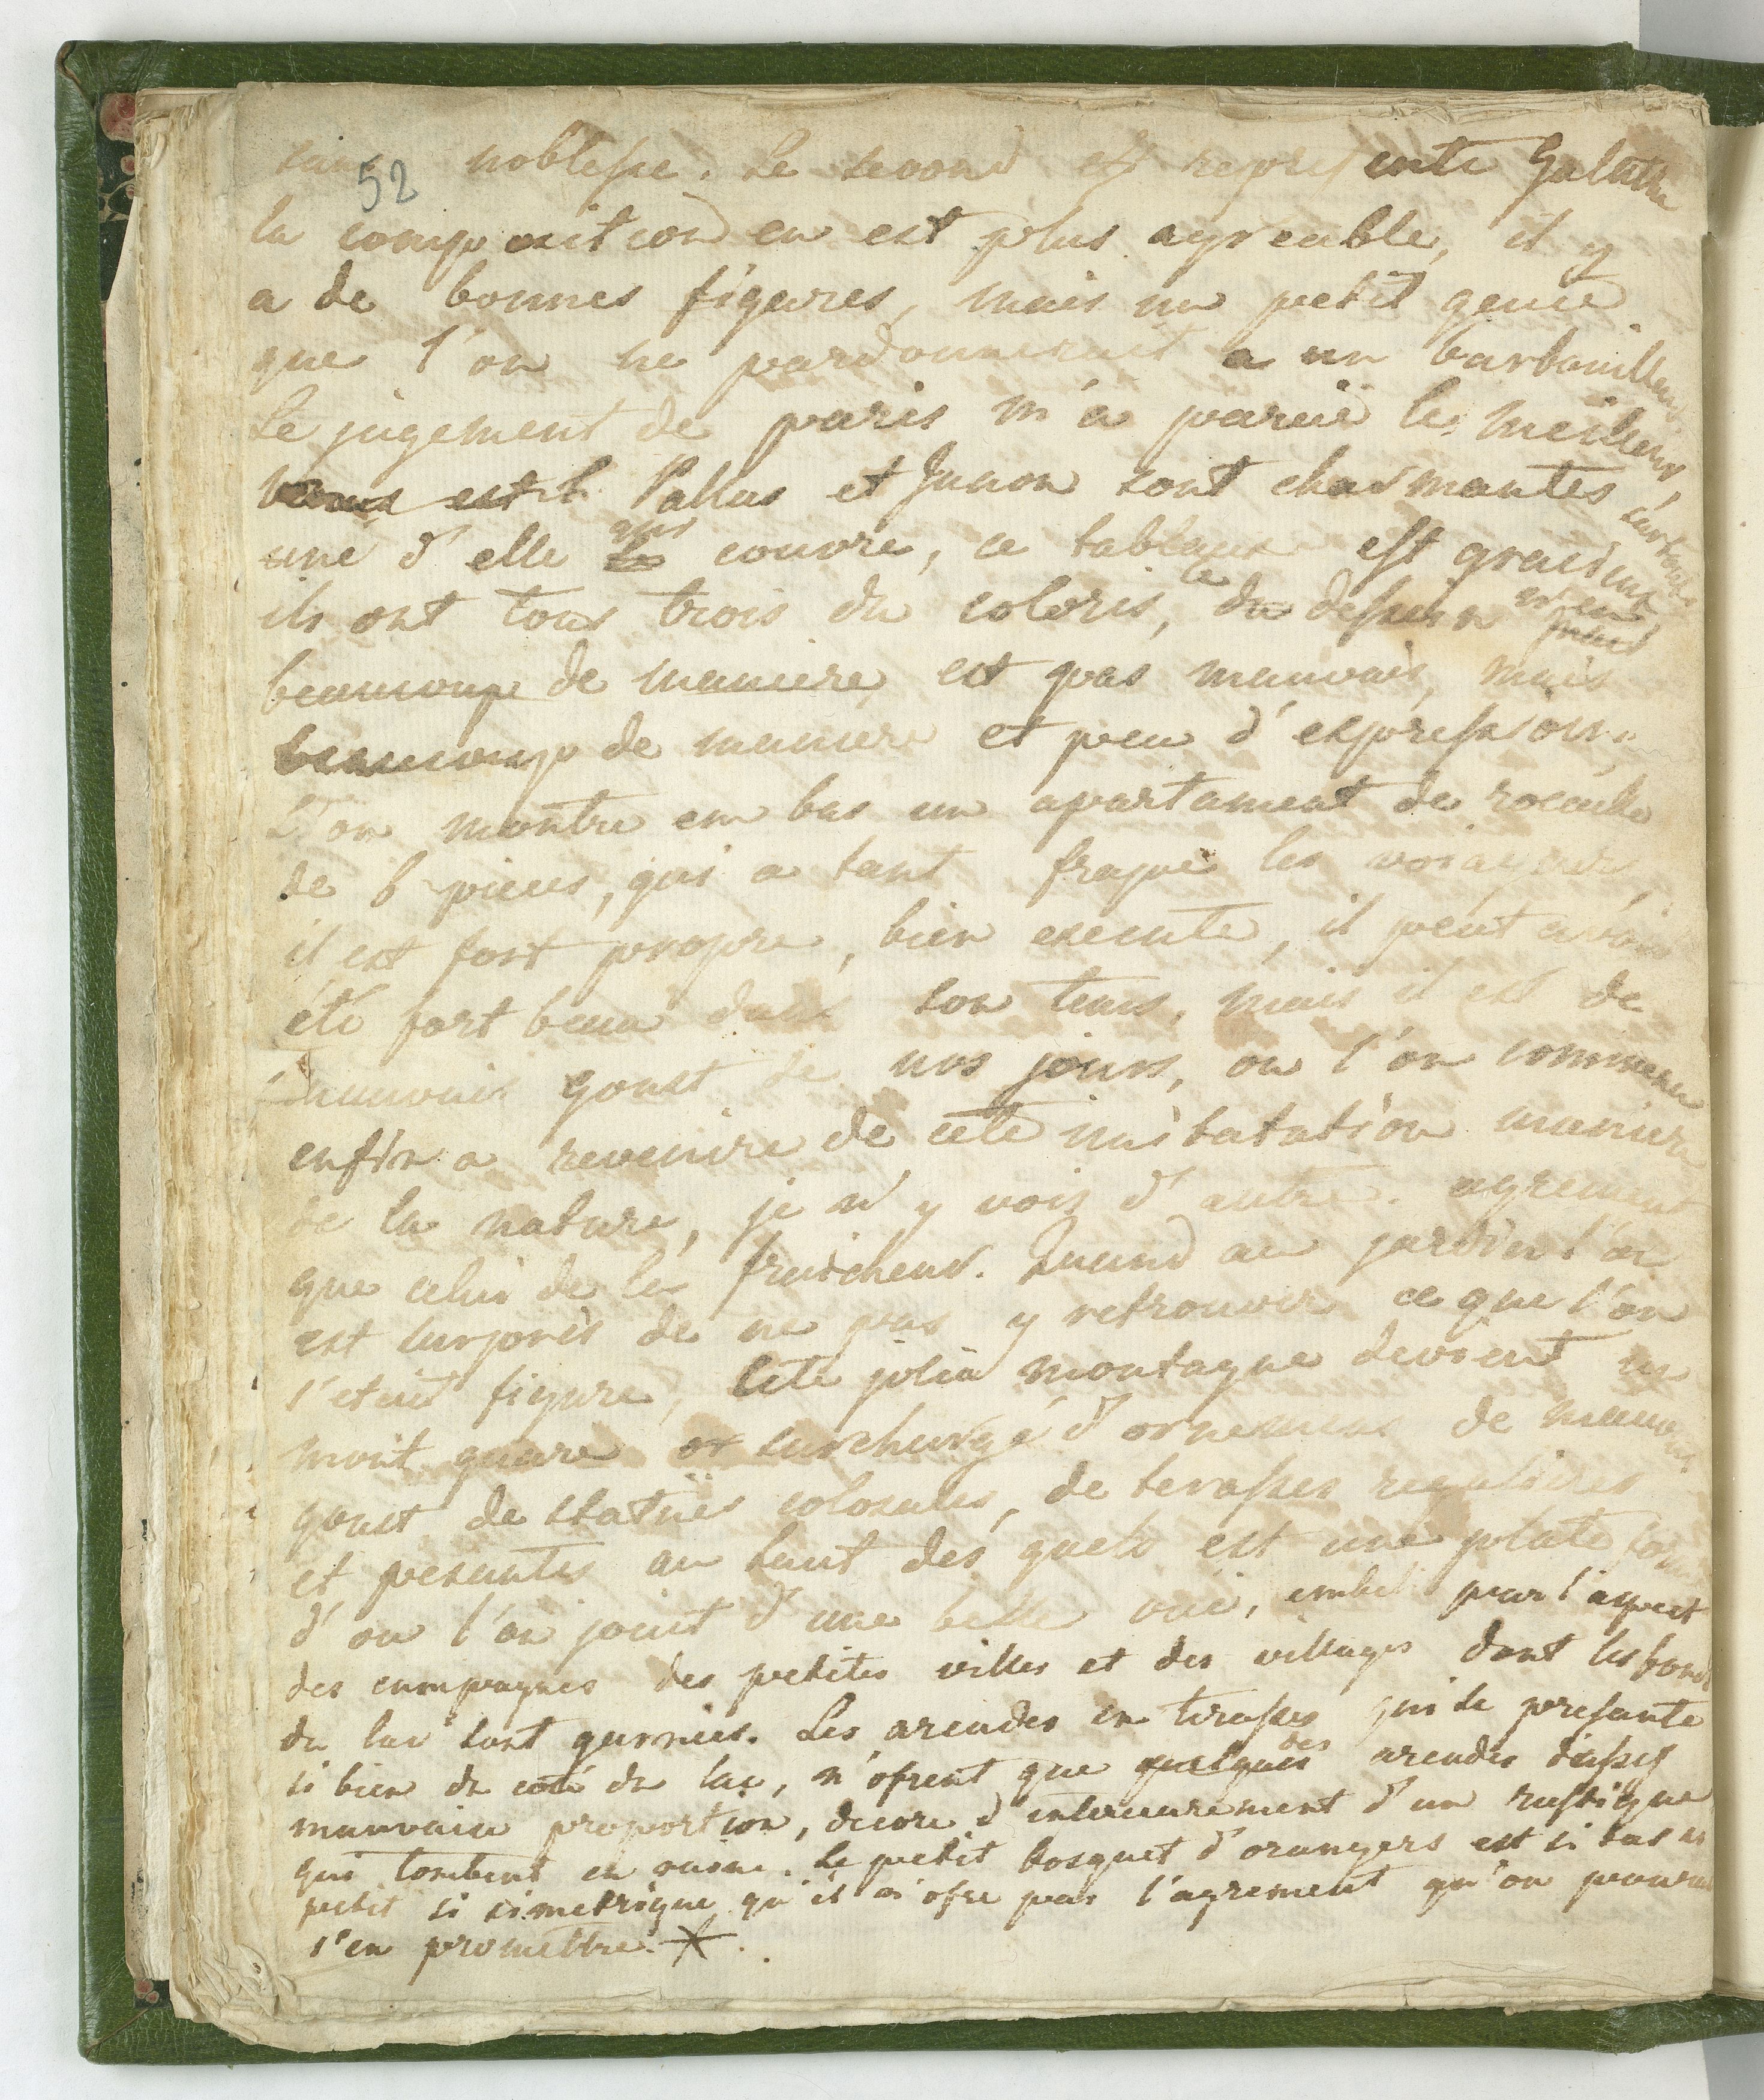 52
sans noblesse. Le second est represente Galathe
la composition en est plus agreable, il y
a de bonnes figures, mais un petit genie
que l'on ne pardonnerait a un barbouilleur.
Le jugement de paris m'a paruë le meilleur,
venus est b Pallas et Junon sont charmantes surtout
une d'elle qui se couvre, ce tableaux est gracieux
ils ont tous trois du coloris, du le dessein n'en
beaucoup de maniere, est pas mauvais, mais
beaucoup de maniere et peu d'expression.
L'on montre em bas un apartament de rocaille
de 6 pieces, qui a tant frapé les voiageurs,
il est fort propre, bien execute, il peut avoir
été fort beau dans son tems, mais il est de
mauvais goust de nos jours, ou l'on commence
enfin a revenire de cete imitatation maniere
de la nature, je n'y vois d'autre agrement
que celui de la fraicheur. Quand au jardin l'on
est surpris de ne pas y retrouver ce que l'on
s'etait figure, Cete jolie montagne devient un
mont quare surchargé d'ornemens de mauvais
goust de statuës colosales, de terasses regulieres
et pesantes au haut des quels est une plate forme
d'ou l'on jouit d'une belle vuë, embeli par l'aspect
des campagnes des petites villes et des villages dont les bords
du lac sont garnies. Les arcades en terasses qui se presante
si bien du coté du lac, n'ofrent que quelques des arcades d'assez
mauvaise proportion, decore d'interieurement d'un rustique
qui tombent en ruine. Le petit bosquet d'orangers est si bas si
petit si simetrique qu'il n'ofre pas l'agrement qu'on pouvait
s'en promettre. *